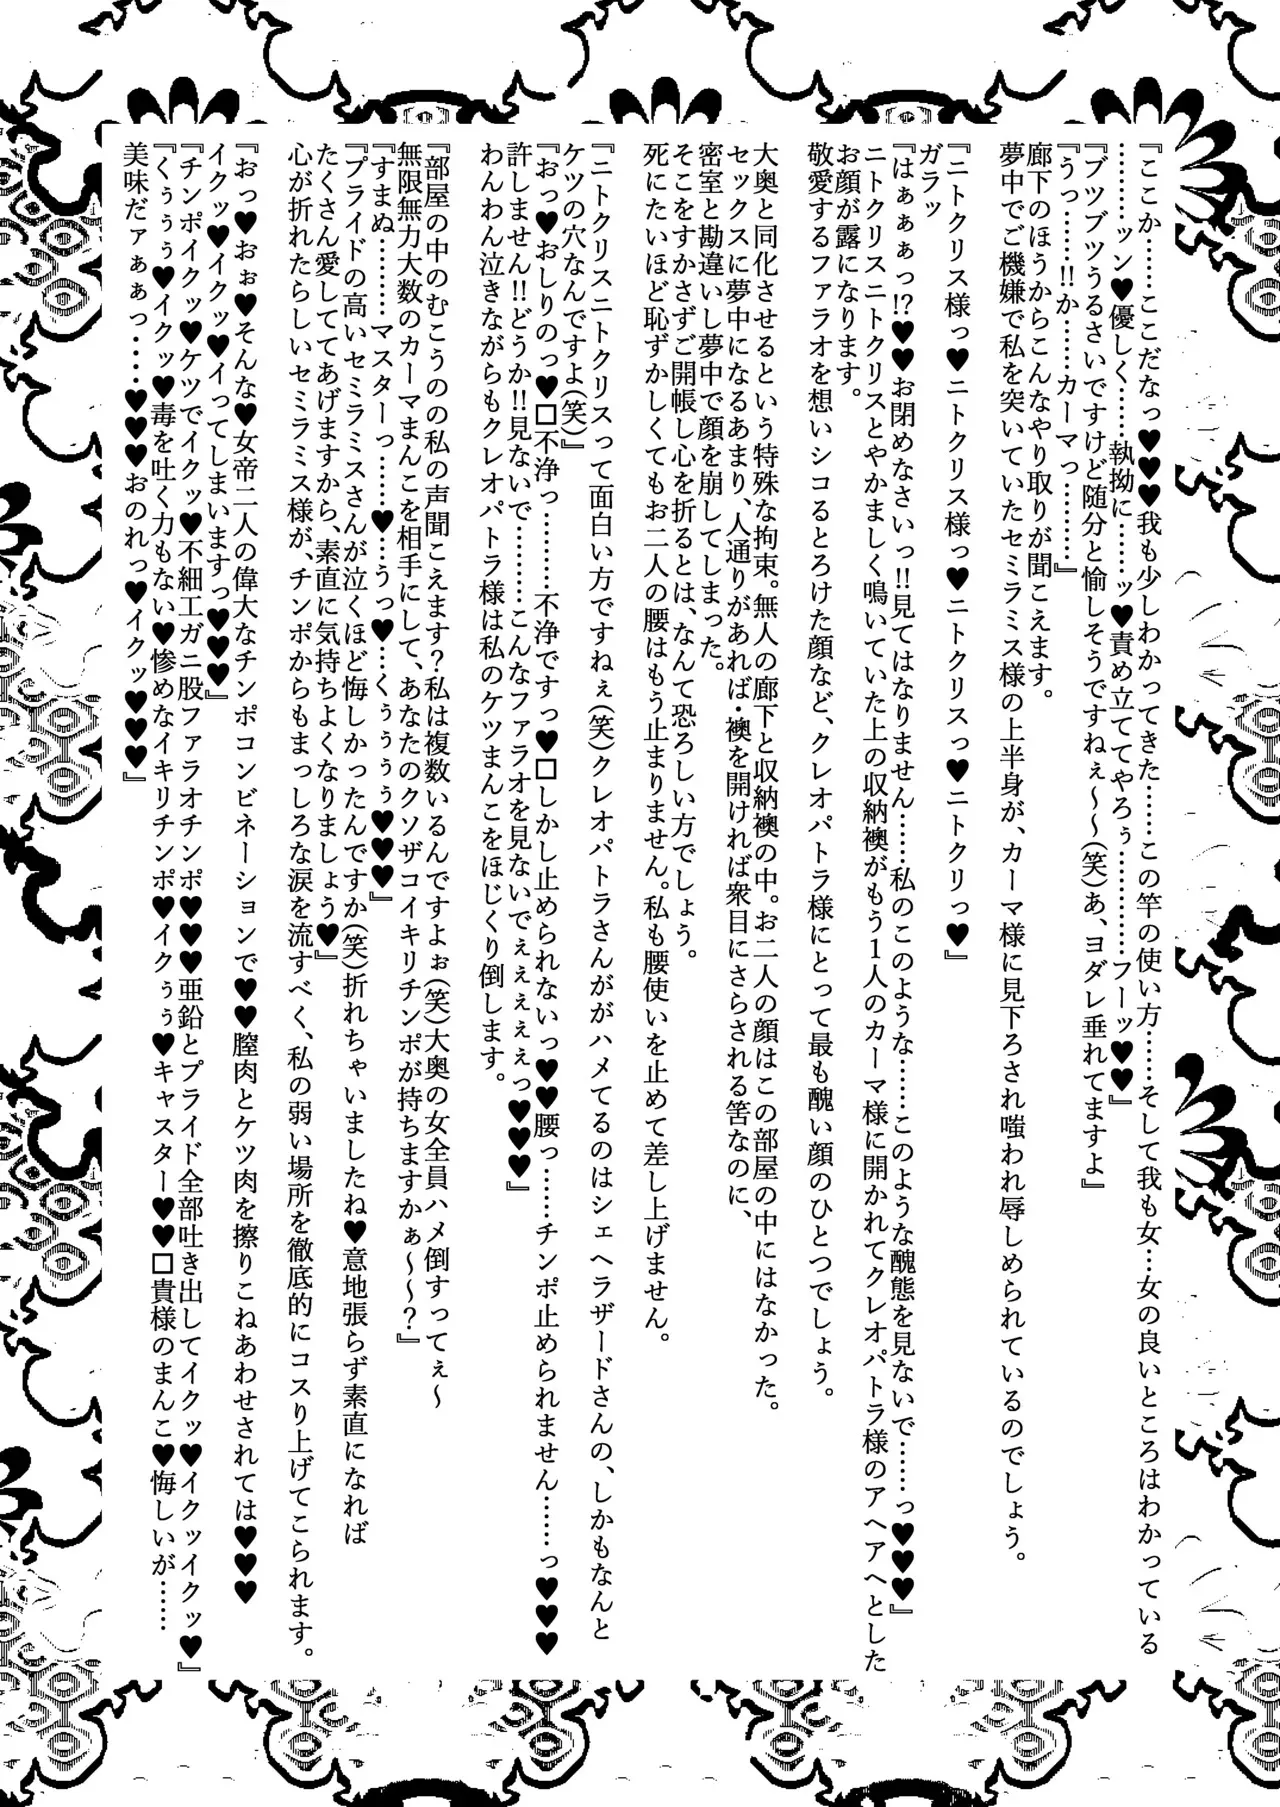 『ここか……ここだなっ♥♥♥我も少しわかってきた……この竿の使い方……そして我も女…女の良いところはわかっている
………ッン♥優しく……執拗に……ッ♥責め立ててやろぅ…………フーッ♥♥』
『ブツブツうるさいですけど随分と愉しそうですねぇ～～(笑)あ、ヨダレ垂れてますよ』
『うっ……!!か……カーマっ………』
廊下のほうからこんなやり取りが聞こえます。
夢中でご機嫌で私を突いていたセミラミス様の上半身が、カーマ様に見下ろされ嗤われ辱しめられているのでしょう。
『ニトクリス様っ♥ニトクリス様っ♥ニトクリスっ♥ニトクリっ♥』
ガラッ
『はぁぁぁっ!?♥♥お閉めなさいっ!!見てはなりません……私のこのような……このような醜態を見ないで……っ♥♥♥』
ニトクリスニトクリスとやかましく鳴いていた上の収納襖がもう1人のカーマ様に開かれてクレオパトラ様のアヘアヘとした
お顔が露になります。
敬愛するファラオを想いシコるとろけた顔など、クレオパトラ様にとって最も醜い顔のひとつでしょう。
大奥と同化させるという特殊な拘束。無人の廊下と収納襖の中。お二人の顔はこの部屋の中にはなかった。
セックスに夢中になるあまり、人通りがあれば・襖を開ければ衆目にさらされる筈なのに、
密室と勘違いし夢中で顔を崩してしまった。
そこをすかさずご開帳し心を折るとは、なんて恐ろしい方でしょう。
死にたいほど恥ずかしくてもお二人の腰はもう止まりません。私も腰使いを止めて差し上げません。
『ニトクリスニトクリスって面白い方ですねぇ(笑)クレオパトラさんががハメてるのはシェヘラザードさんの、しかもなんと
ケツの穴なんですよ(笑)』
『おっ♥おしりのっ♥□不浄っ………不浄ですっ♥□しかし止められないっ♥♥腰っ……チンポ止められません……っ♥♥♥
許しません!!どうか!!見ないで………こんなファラオを見ないでぇぇぇぇぇっ♥♥♥』
わんわん泣きながらもクレオパトラ様は私のケツまんこをほじくり倒します。
『部屋の中のむこうのの私の声聞こえます？私は複数いるんですよぉ(笑)大奥の女全員ハメ倒すってぇ～
無限無力大数のカーマまんこを相手にして、あなたのクソザコイキリチンポが持ちますかぁ～～？』
『すまぬ………マスターっ……♥…うっ♥…くぅぅぅぅ♥♥♥』
『プライドの高いセミラミスさんが泣くほど悔しかったんですか(笑)折れちゃいましたね♥意地張らず素直になれば
たくさん愛してあげますから、素直に気持ちよくなりましょう♥』
心が折れたらしいセミラミス様が、チンポからもまっしろな涙を流すべく、私の弱い場所を徹底的にコスり上げてこられます。
『おっ♥おぉ♥そんな♥女帝二人の偉大なチンポコンビネーションで♥♥膣肉とケツ肉を擦りこねあわせされては♥♥♥
イクッ♥イクッ♥イってしまいますっ♥♥♥』
『チンポイクッ♥ケツでイクッ♥不細工ガニ股ファラオチンポ♥♥♥亜鉛とプライド全部吐き出してイクッ♥イクッイクッ♥』
『くぅぅぅ♥イクッ♥毒を吐く力もない♥惨めなイキリチンポ♥イクぅぅ♥キャスター♥♥□貴様のまんこ♥悔しいが……
美味だァぁぁっ……♥♥♥おのれっ♥イクッ♥♥♥』